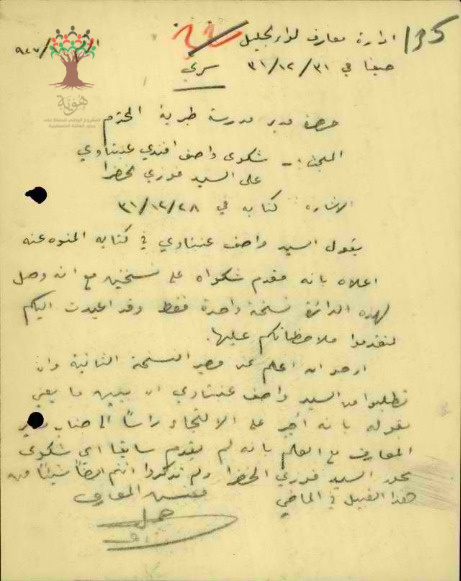 135
ادارة معارف لواء الجليل
حيفا في ٣١/١٢/٣١
سري
هوية
حضرة مدير مدرسة طبرية المحترم
البحث :- شكوى واصف افندي عنبتاوي
على السيد فوزي الخضرا
الاشارة كتابه في ٣١/١٢/٢٨
يقول السيد واصف عنبتاوي في كتابه المنوه عنه
اعلاه بانه قدم شكواه على نسختين مع انه وصل
لهذه الدائرة نسخة واحدة فقط وقد اعيدت اليكم
لتقدموا ملاحظاتكم عليها.
ارجو ان اعلم عن مصير النسخة الثانية وان
تطلبوا من السيد واصف عنبتاوي ان يبين ما يعني
بقوله بانه أجبر على الالتجاء رأسًا الى جناب مدير
المعارف مع العلم بانه لم يقدم سابقا اي شكوى
بحق السيد فوزي الخضرا ولم تذكروا انتم ايضًا شيئًا من
هذا القبيل في الماضي
مفتش المعارف